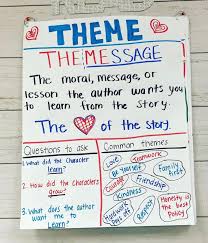 THEME
THEMESSAGE
The moral, message, or
lesson the author wants you
to learn from the story.
The of the story.
Questions to ask
1. What did the character
learn?
2. How did the characters
grow?
3. What does the author
want me to
learn?
Common themes
Love
Teamwork
Be Yourself
Family first
Courage
Friendship
Kindness
Respect
Honesty is
the best
Policy